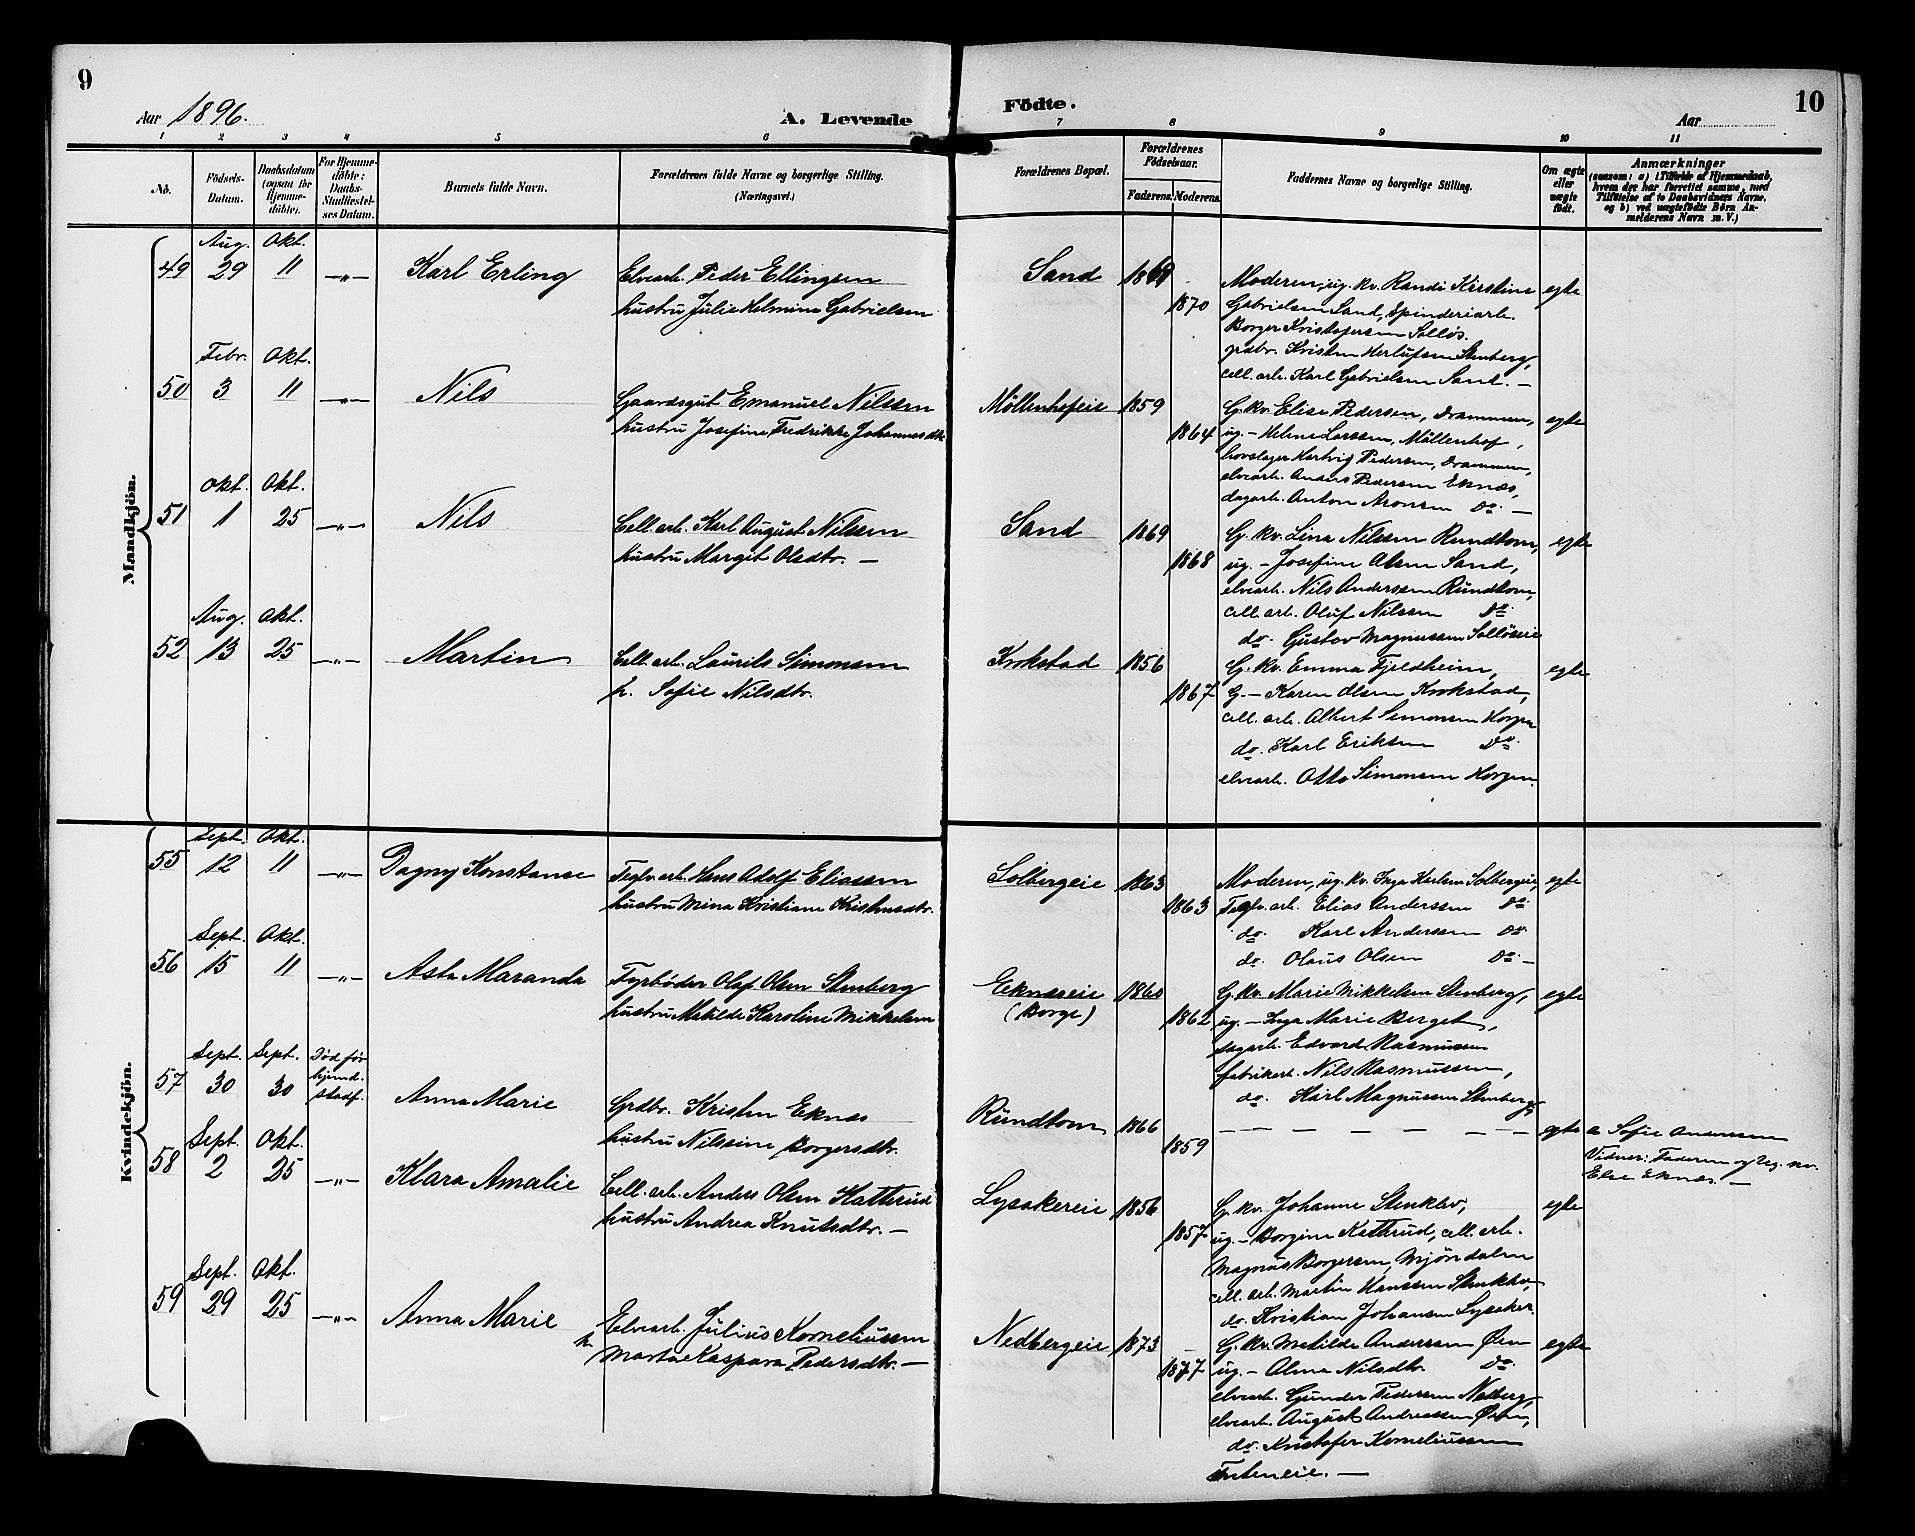 9
Aar 1896.
A. Levende
1 2 3 4 5 6
No.
Födsels-
Datum.
Daabsdatum
(ogsaa for
Hjemme-
döbte).
For Hjemme-
döbte:
Daabs-
Stadfæstel-
ses Datum.
Barnets fulde Navn.
Forældrenes fulde Navne og borgerlige Stilling.
(Næringsvei.)
Mandkjön.
Aug. Okt.
49 29 11 —„— Karl Erling Elvearb. Peder Ellingsen
hustru Julie Helmine Gabrielsen
Febr. Okt.
50 3 11 —„— Nils Gaardsgut Emanuel Nilssen
hustru Josefine Fredrikke Johannesdtr
Okt. Okt.
51 1 25 —„— Nils Cell. arb. Karl August Nilssen
hustru Margit Olsdtr. —
Aug. Okt.
52 13 25 —„— Martin Cell. arb. Laurits Simonsen
h. Sofie Nilsdtr.
Kvindekjön.
Sept. Okt.
55 12 11 —„— Dagny Konstanse Teglv. arb. Hans Adolf Eliassen
hustru Mina Kristiane Kristensdtr.
Sept. Okt.
56 15 11 —„— Asta Maranda Fyrbøder Olaf Olsen Stenberg
hustru Matilde Karoline Mikkelsen
Sept. Sept. Død før
57 30 30 hjemd.
stadf.
Anna Marie Grdbr. Kristen Eknæs
hustru Nilssine Borgersdtr.
Sept. Okt.
58 2 25 —„— Klara Amalie Cell. arb. Anders Olsen Katterud
hustru Andrea Knutsdtr. —
Sept. Okt.
59 29 25 —„— Anna Marie Elvearb. Julius Korneliussen
h. Marta Kaspara Pedersdtr. —
Födte.
10
Aar
7 8 9 10 11
Forældrenes Bopæl.
Forældrenes
Födselsaar.
Faderens. Moderens.
Faddernes Navne og borgerlige Stilling.
Om ægte
eller
uægte
födt.
Anmærkninger
(saasom: a) i Tilfælde af Hjemmedaab,
hvem der har forrettet samme, med
Tilföielse af to Daabsvidners Navne,
og b) ved uægtefödte Börn An-
melderens Navn m. V.)
Sand 1869 Moderen, ug. kv. Randi Kirstine egte
1870 Gabrielsen Sand, Spinderiarb.
Borger Kristofersen Solløs.
grdbr. Kristen Herlufsen Stenberg,
cell. arb. Karl Gabrielsen Sand. —
Møllenhofeie 1859 G. kv. Elise Pedersen, Drammen, egte
1864 ug. — Helene Larssen, Møllenhof,
hovslager Hartvig Pedersen, Drammen,
elvearb. Anders Pedersen Eknæs,
dagarb. Anton Aronsen do. —
Sand 1869 G. kv. Lina Nilssen Rundtom, egte
1868 ug. — Josefine Olsen Sand,
elvearb. Nils Anderssen Rundtom,
cell. arb. Oluf Nilssen do.
do. Gustav Magnussen Solløseie
Krokstad 1856 G. kv. Emma Fjeldheim, egte
1867 G. — Karen Olsen Krokstad,
cell. arb. Albert Simonsen Horgen
do. Karl Eriksen do.
elvearb. Otto Simonsen Horgen.
Solbergeie 1863 Moderen, ug. kv. Inga Solbergeie, egte
1863 Teglv. arb. Elias Anderssen do.
do. Karl Anderssen do.
do. Olaus Olsen do. —
Eknæseie 1860 G. kv. Marie Mikkelsen Stenberg, egte
(Borge) 1862 ug. — Inga Marie Berget,
sagarb. Edvard Rasmussen
fabrikarb. Nils Rasmussen,
do. Karl Magnussen Stenberg
Rundtom 1866 — — — — — — egte a Sofie Anderssen
1859 Vidner: Faderen og ug. kv.
Else Eknæs. —
Lysakereie 1856 G. kv. Johanne Stenklev, egte
1857 ug. — Borgine Katterud, cell. arb.
Magnus Borgersen, Mjøndalen
cell. arb. Martin Hanssen Stenklev,
do. Kristian Johansen Lysaker.
Nedbergeie 1873 G. kv. Matilde Anderssen Øen egte
1877 ug. — Olma Nilsdtr. do.
elvearb. Gunder Pedersen Nedberg,
elvearb. August Andreassen Øen,
do. Kristofer Korneliussen